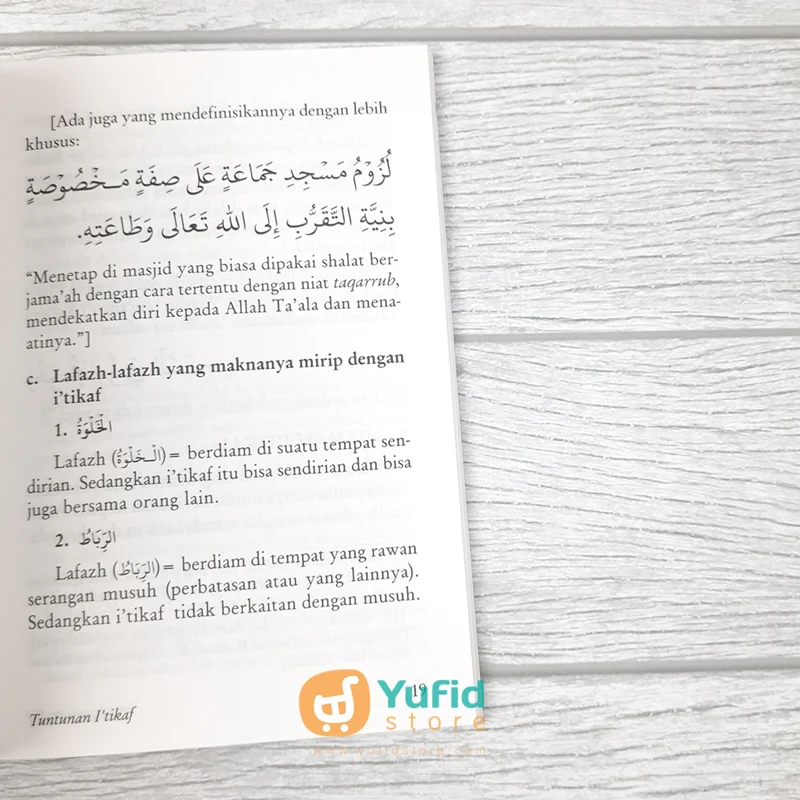 [Ada juga yang mendefinisikannya dengan lebih
khusus:
لُزُوْمُ مَسْجِدِ جَمَاعَةٍ عَلَى صِفَةٍ مَخْصُوْصَةٍ
بِنِيَّةِ التَّقَرُّبِ إِلَى اللهِ تَعَالَى وَطَاعَتِهِ.
“Menetap di masjid yang biasa dipakai shalat ber-
jama’ah dengan cara tertentu dengan niat taqarrub,
mendekatkan diri kepada Allah Ta’ala dan mena-
atinya.”]
c. Lafazh-lafazh yang maknanya mirip dengan
i’tikaf
1. الْخَلْوَةُ
Lafazh (الْـخَلْوَةُ) = berdiam di suatu tempat sen-
dirian. Sedangkan i’tikaf itu bisa sendirian dan bisa
juga bersama orang lain.
2. الرِّبَاطُ
Lafazh (الرِّبَاطُ) = berdiam di tempat yang rawan
serangan musuh (perbatasan atau yang lainnya).
Sedangkan i’tikaf tidak berkaitan dengan musuh.
19
Tuntunan I'tikaf
Yufid
store
www.yufidstore.com